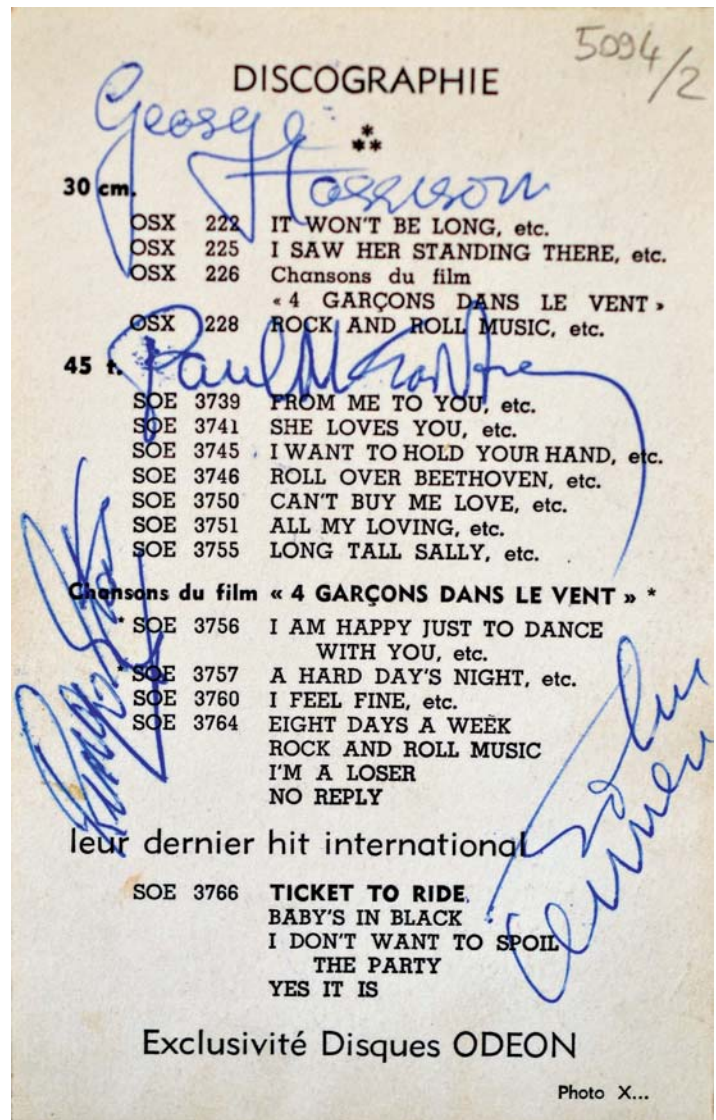 5094/2
DISCOGRAPHIE
George
Harrison
30 cm.
OSX 222 IT WON'T BE LONG, etc.
OSX 225 I SAW HER STANDING THERE, etc.
OSX 226 Chansons du film
« 4 GARÇONS DANS LE VENT »
OSX 228 ROCK AND ROLL MUSIC, etc.
Paul McCartney
45 t.
SOE 3739 FROM ME TO YOU, etc.
SOE 3741 SHE LOVES YOU, etc.
SOE 3745 I WANT TO HOLD YOUR HAND, etc.
SOE 3746 ROLL OVER BEETHOVEN, etc.
SOE 3750 CAN'T BUY ME LOVE, etc.
SOE 3751 ALL MY LOVING, etc.
SOE 3755 LONG TALL SALLY, etc.
Chansons du film « 4 GARÇONS DANS LE VENT » *
* SOE 3756 I AM HAPPY JUST TO DANCE
WITH YOU, etc.
* SOE 3757 A HARD DAY'S NIGHT, etc.
SOE 3760 I FEEL FINE, etc.
SOE 3764 EIGHT DAYS A WEEK
ROCK AND ROLL MUSIC
I'M A LOSER
NO REPLY
Ringo Starr
John
Lennon
leur dernier hit international
SOE 3766 TICKET TO RIDE
BABY'S IN BLACK
I DON'T WANT TO SPOIL
THE PARTY
YES IT IS
Exclusivité Disques ODEON
Photo X...